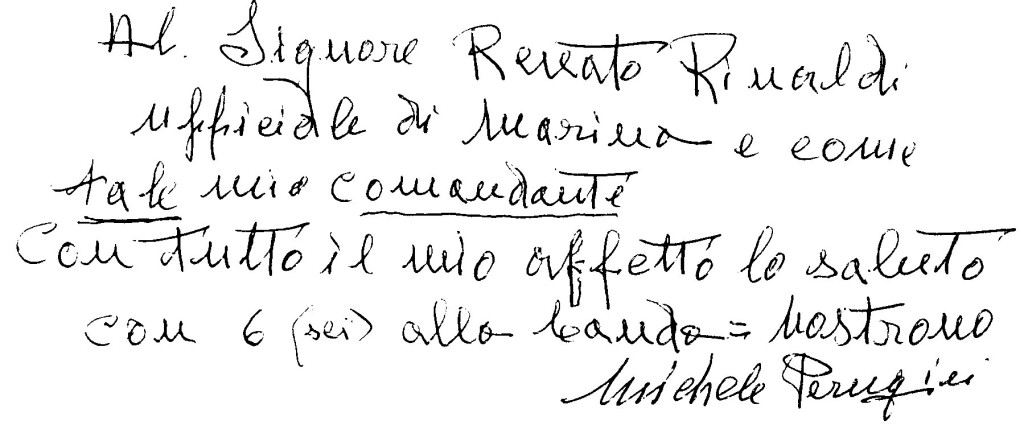 Al. Signore Renato Rinaldi
ufficiale di marina e come
tale mio comandante
Con tutto il mio affetto lo saluto
con 6 (sei) alla banda = Nostromo
Michele Perugini